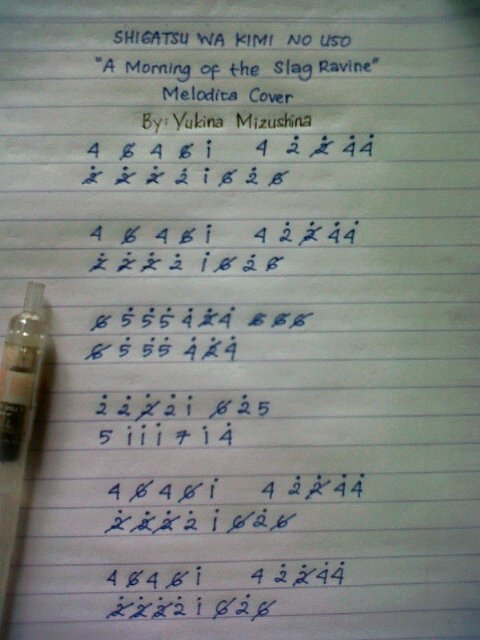 SHIGATSU WA KIMI NO USO
"A Morning of the Slag Ravine"
Melodica Cover
By: Yukina Mizushina
4 6̸ 4 6̸ i̇ 4 2̇ 2̸̇ 4̇ 4̇
2̸̇ 2̸̇ 2̸̇ 2̇ i̇ 6̸ 2̇ 6̸
4 6̸ 4 6̸ i̇ 4 2̇ 2̸̇ 4̇ 4̇
2̸̇ 2̸̇ 2̸̇ 2̇ i̇ 6̸ 2̇ 6̸
6̸ 5̇ 5̇ 5̇ 4̇ 2̸̇ 4̇ 6̸ 6̸ 6̸
6̸ 5̇ 5̇ 5̇ 4̇ 2̸̇ 4̇
2̇ 2̇ 2̸̇ 2̇ i̇ 6̸ 2̇ 5
5 i̇ i̇ i̇ 7 i̇ 4̇
4 6̸ 4 6̸ i̇ 4 2̇ 2̸̇ 4̇ 4̇
2̸̇ 2̸̇ 2̸̇ 2̇ i̇ 6̸ 2̇ 6̸
4 6̸ 4 6̸ i̇ 4 2̇ 2̸̇ 4̇ 4̇
2̸̇ 2̸̇ 2̸̇ 2̇ i̇ 6̸ 2̇ 6̸